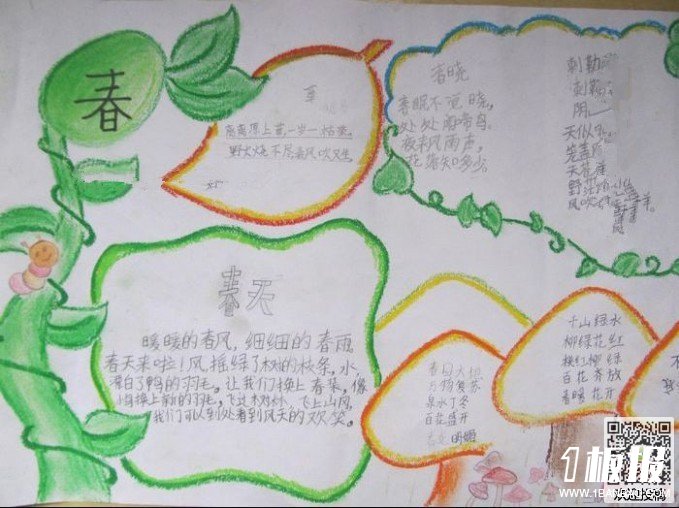 春
草
离离原上草一岁一枯荣
野火烧不尽春风吹又生
春晓
春眠不觉晓,
处处闻啼鸟。
夜来风雨声,
花落知多少。
刺勒
刺勒
阴
天似
笼盖
天苍
野茫
风吹
春天
暖暖的春风,细细的春雨
春天来啦!风,摇绿了树的枝条,水
漂白了鸭的羽毛。让我们换上春装,像
小鸟换上新的羽毛,飞过
飞上山风
我们可以到处看到风天的欢笑。
春回大地
万物复苏
泉水丁冬
百花盛开
明媚
十山绿水
柳绿花红
桃红柳绿
百花齐放
春暖花开
1板报
WWW.1BANBAO.COM
欢迎投稿